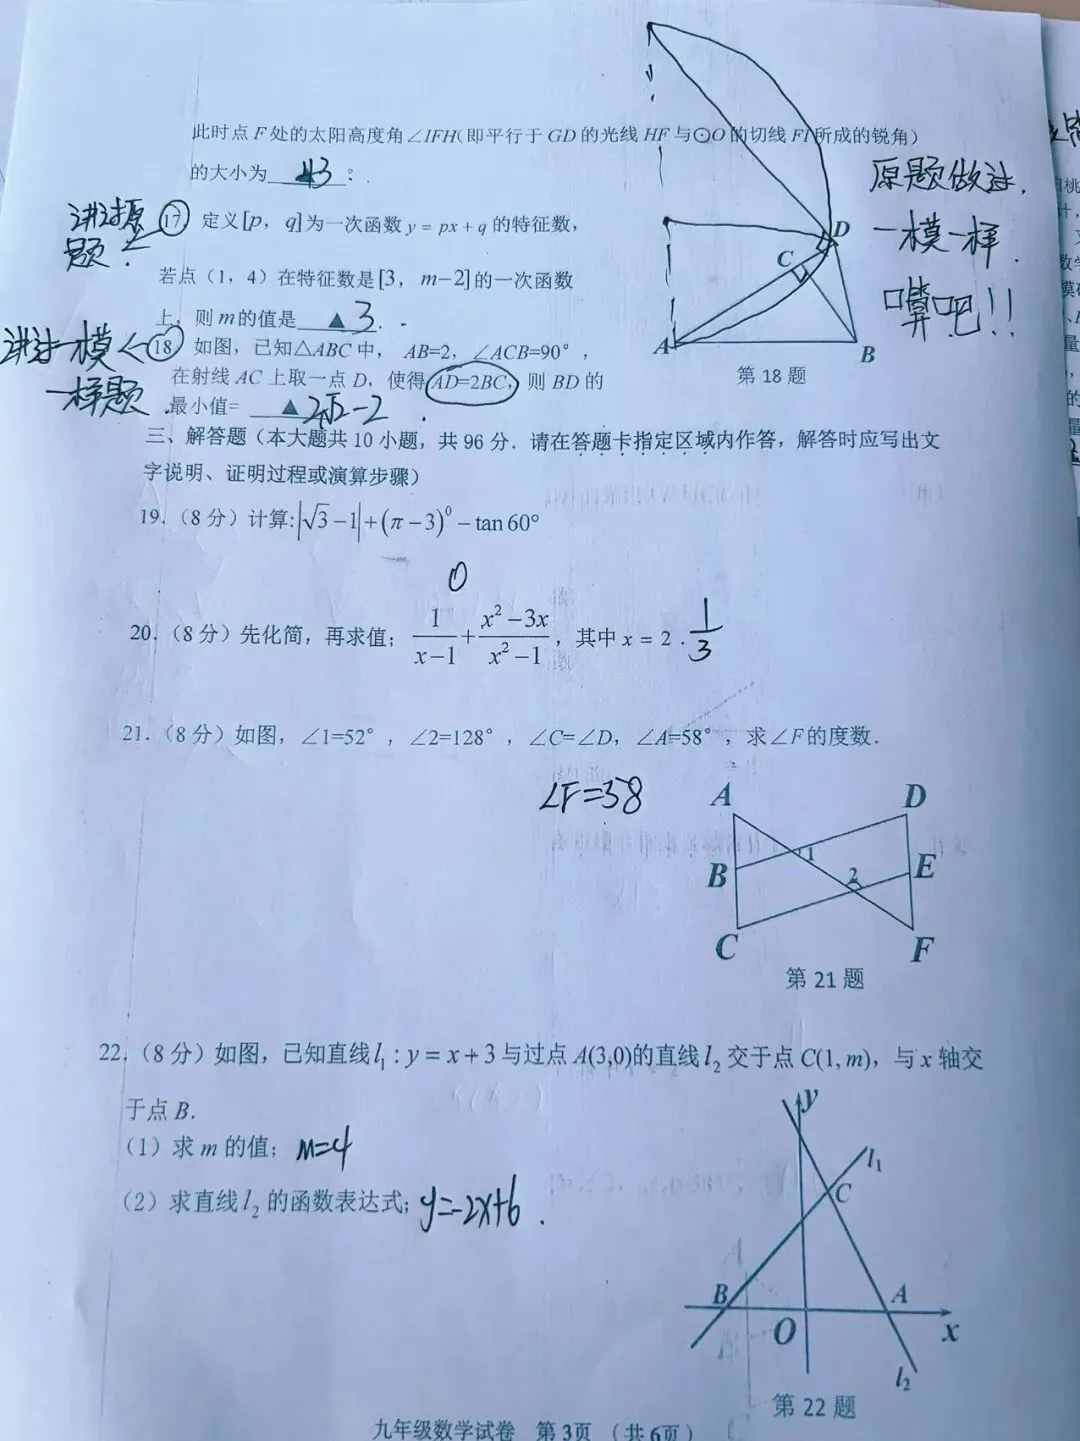 此时点 F 处的太阳高度角∠IFH(即平行于 GD 的光线 HF 与⊙O 的切线 FI 所成的锐角)
的大小为 43 °.
讲过原题.
17 定义[p, q]为一次函数 y = px + q 的特征数,
若点（1，4）在特征数是[3, m−2]的一次函数
上，则 m 的值是 ▲ 3 .
讲过一模一样题.
18 如图，已知△ABC 中， AB=2，∠ACB=90°，
在射线 AC 上取一点 D，使得 AD=2BC，则 BD 的
最小值= ▲ 2√2−2 .
D
C
A
B
第 18 题
原题做过.
一模一样.
嘚吧!!
三、解答题（本大题共 10 小题，共 96 分．请在答题卡指定区域内作答，解答时应写出文
字说明、证明过程或演算步骤）
19.（8 分）计算:|√3−1|+(π−3)⁰−tan 60°
0
20.（8 分）先化简，再求值：1/(x−1)+(x²−3x)/(x²−1)，其中 x = 2 . 1/3
21.（8 分）如图，∠1=52°，∠2=128°，∠C=∠D，∠A=58°，求∠F的度数.
∠F=58
A
D
1
B
2
E
C
F
第 21 题
22.（8 分）如图，已知直线 l₁ : y = x + 3 与过点 A(3,0)的直线 l₂ 交于点 C(1, m)，与 x 轴交
于点 B.
（1）求 m 的值; m=4
（2）求直线 l₂ 的函数表达式; y=-2x+6 .
y
l₁
C
B
A
O
x
l₂
第 22 题
九年级数学试卷 第 3页 （共 6页）